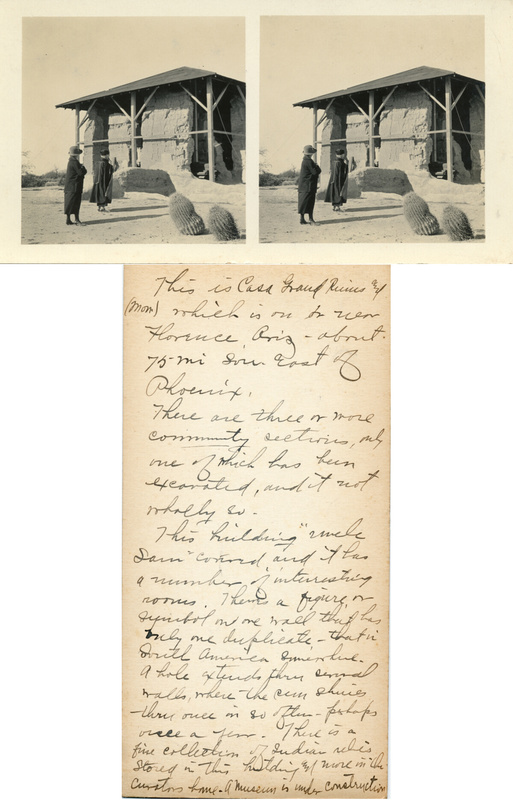 This is Casa Grand Ruins &
(Mom) which is on or near
Florence, Ariz - about
75 mi Sou. East of
Phoenix.
There are three or more
community sections, only
one of which has been
excavated, and it not
wholly so.
This building "uncle
Sam" covered and it has
a number of interesting
rooms. There's a figure, or
symbol on one wall that has
only one duplicate - that in
South America somewhere.
A hole extends thru several
walls, where the sun shines
thru once in so often - perhaps
once a year. There is a
fine collection of Indian relics
stored in this building & more in the
curators home - A Museum is under construction